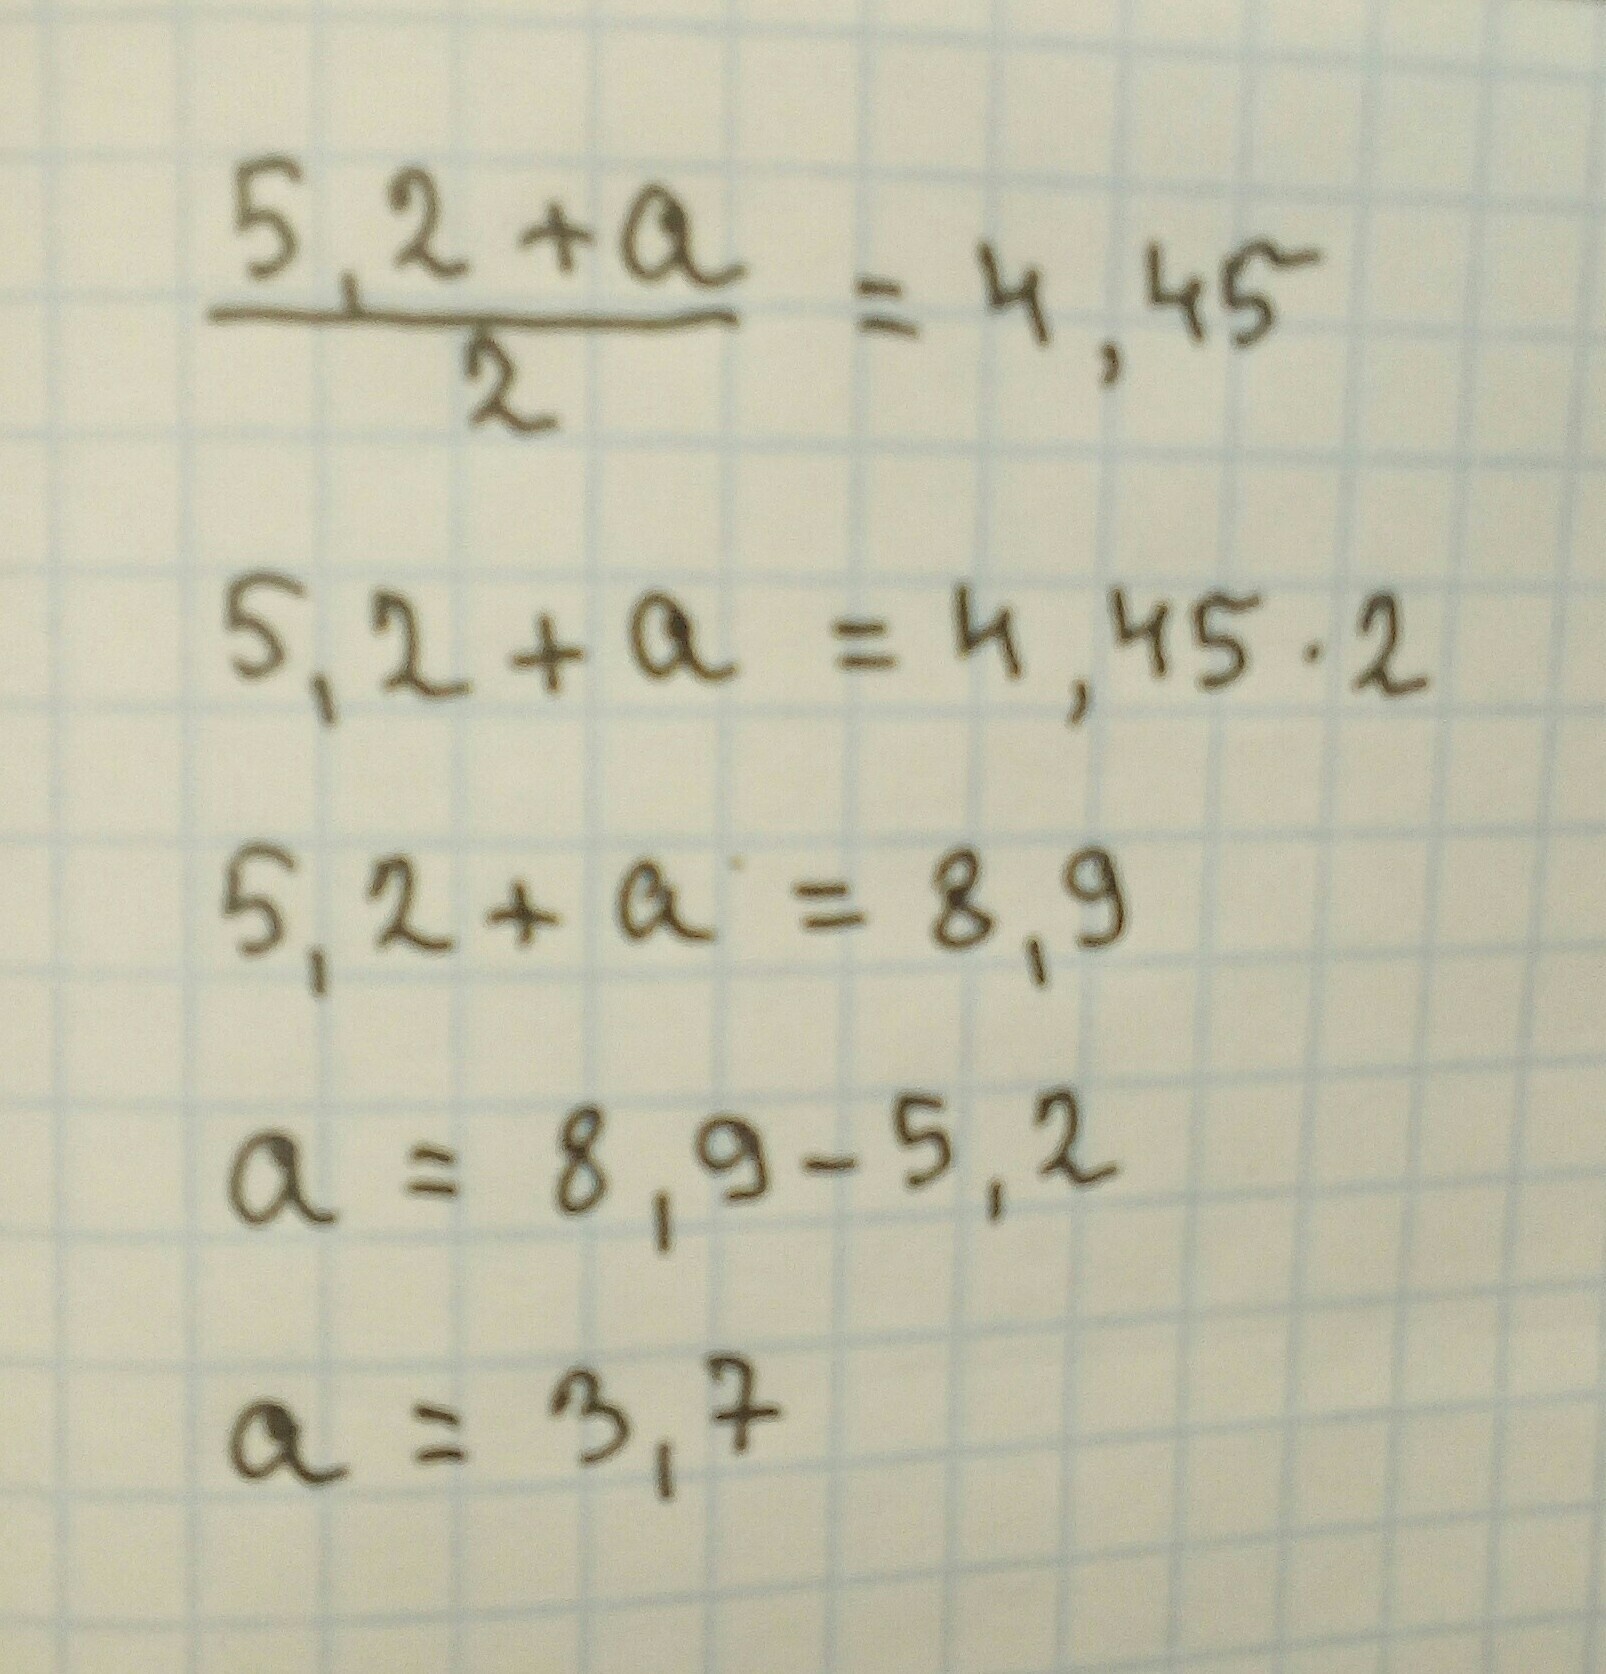 (5,2 + a)/2 = 4,45
5,2 + a = 4,45 · 2
5,2 + a = 8,9
a = 8,9 - 5,2
a = 3,7